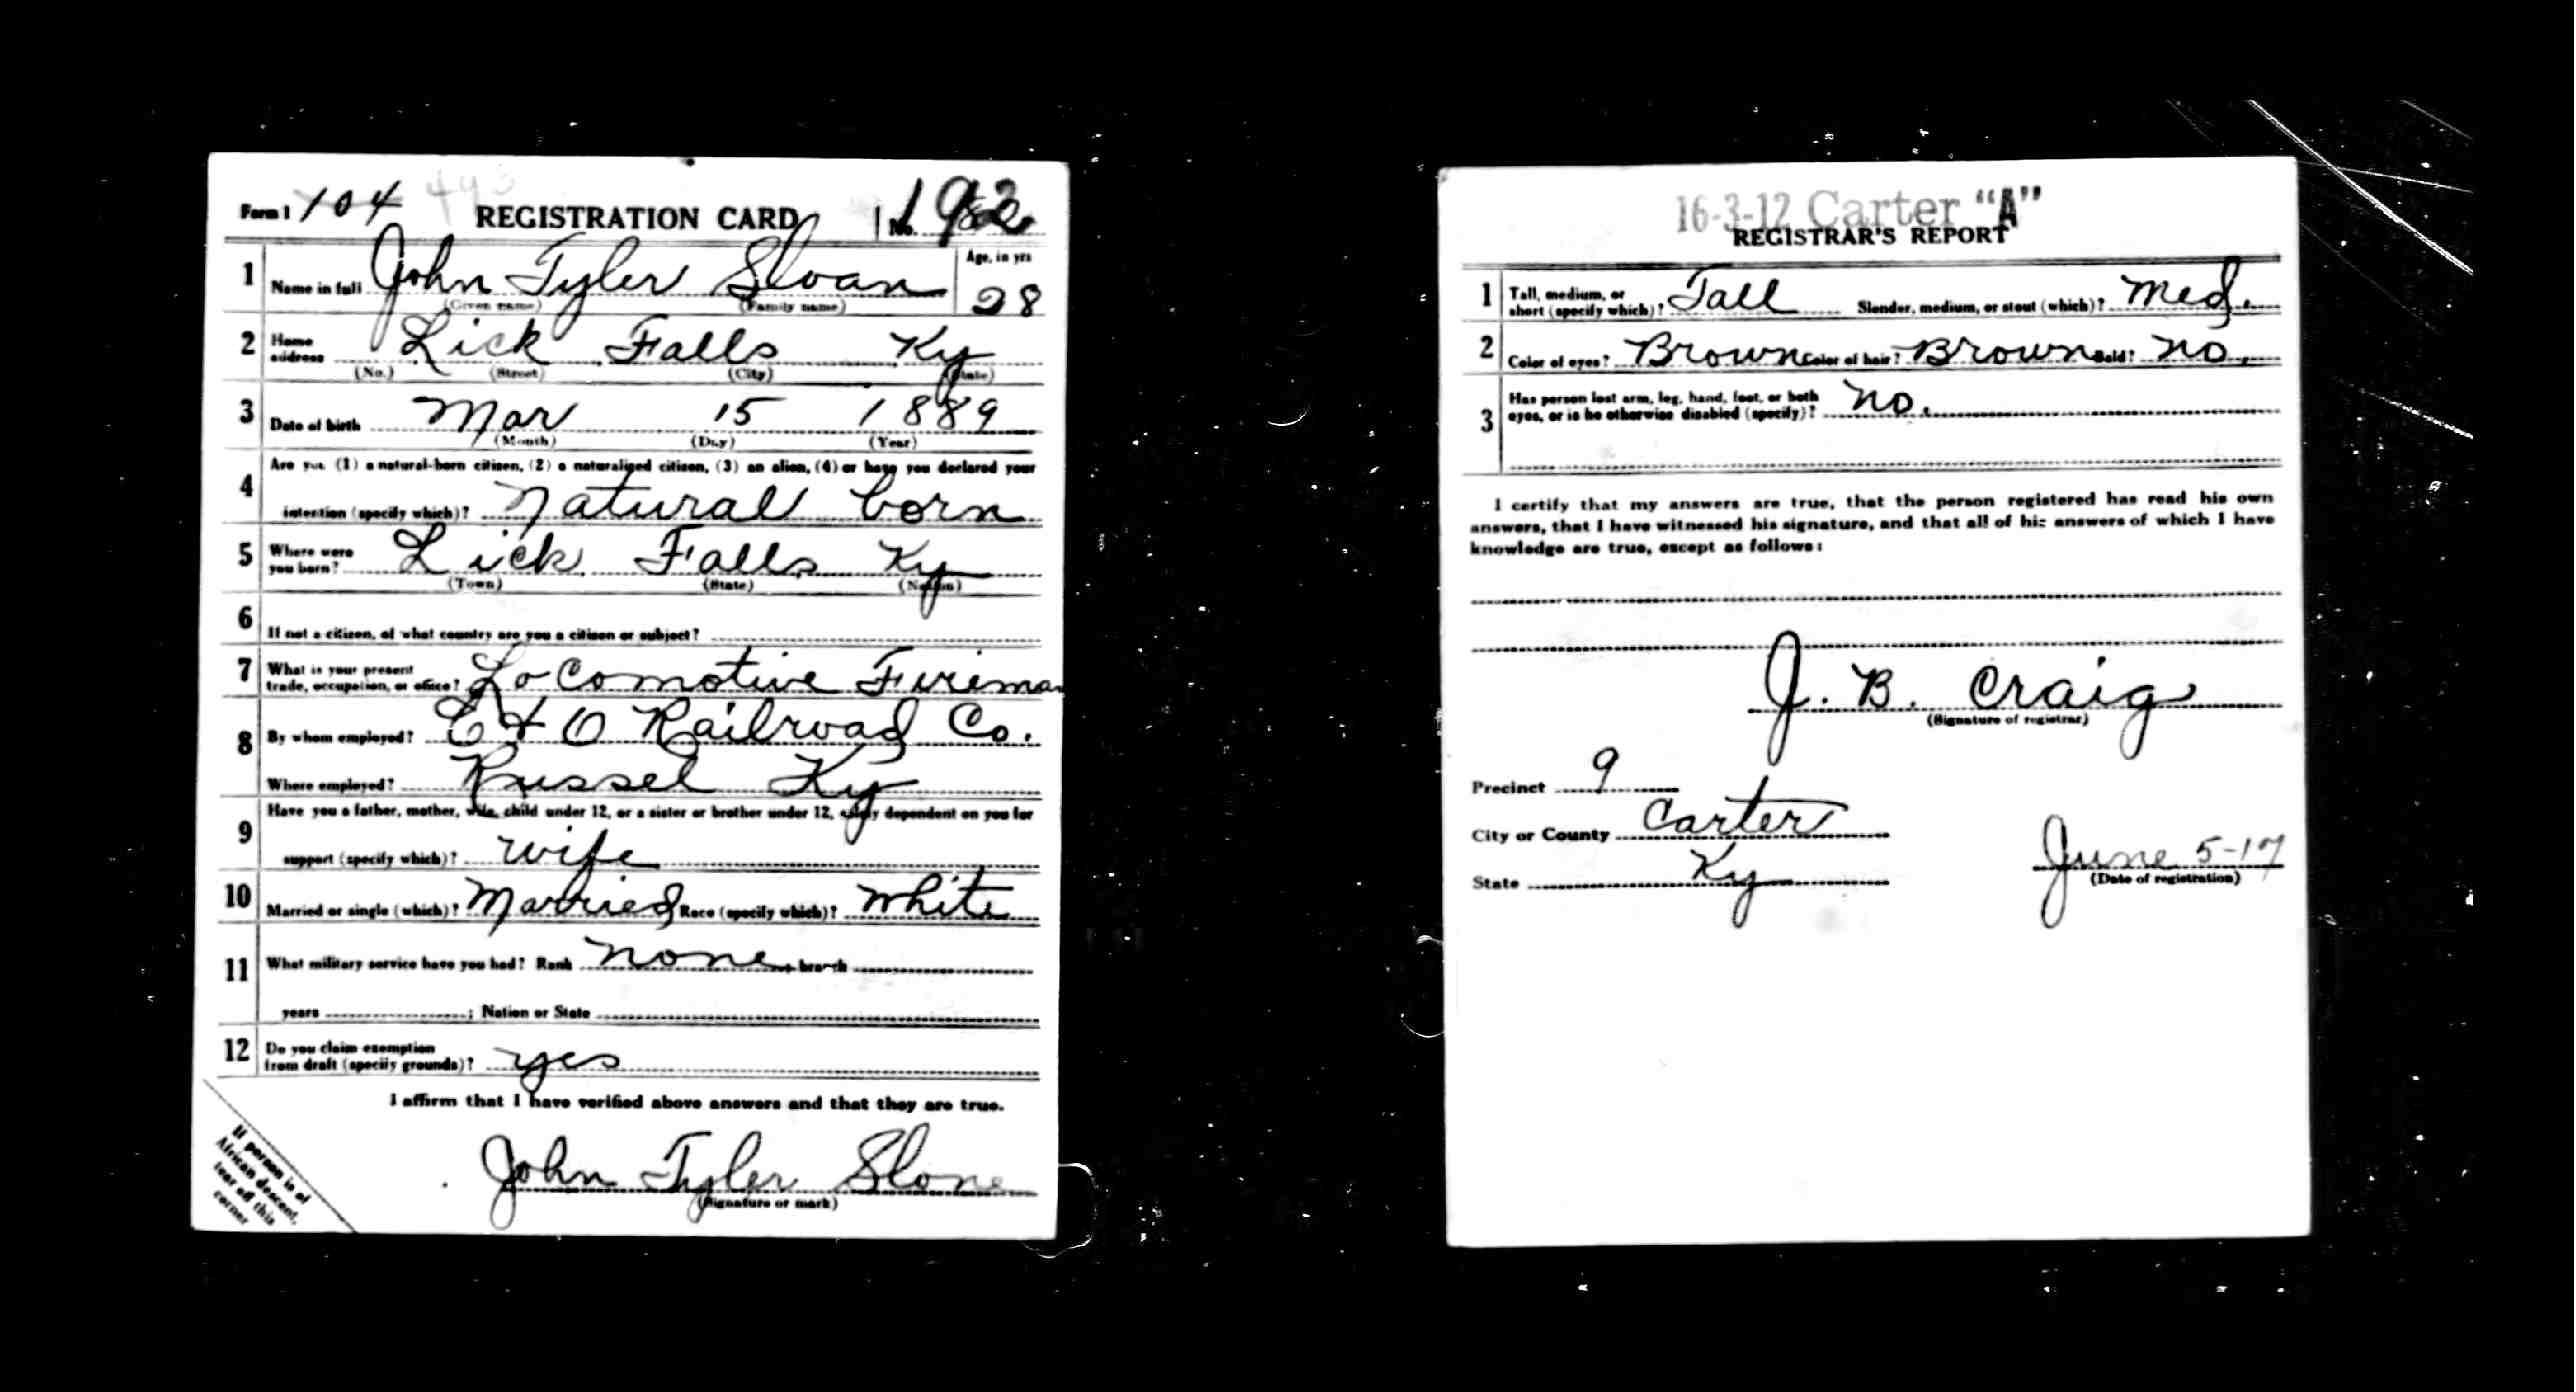 Form 1 104 443 REGISTRATION CARD No. 192
1 Name in full John Tyler Sloan Age, in yrs 28
(Given name) (Family name)
2 Home address Lick Falls Ky
(No.) (Street) (City) (State)
3 Date of birth Mar 15 1889
(Month) (Day) (Year)
4 Are you (1) a natural-born citizen, (2) a naturalized citizen, (3) an alien, (4) or have you declared your
intention (specify which)? Natural born
5 Where were you born? Lick Falls Ky
(Town) (State) (Nation)
6 If not a citizen, of what country are you a citizen or subject?
7 What is your present trade, occupation, or office? Locomotive Fireman
8 By whom employed? C & O Railroad Co.
Where employed? Russel Ky
9 Have you a father, mother, wife, child under 12, or a sister or brother under 12, solely dependent on you for
support (specify which)? wife
10 Married or single (which)? Married Race (specify which)? white
11 What military service have you had? Rank none branch
years ; Nation or State
12 Do you claim exemption from draft (specify grounds)? yes
I affirm that I have verified above answers and that they are true.
John Tyler Slone
(Signature or mark)
If person is of
African descent,
tear off this
corner
16-3-12 Carter "A"
REGISTRAR'S REPORT
1 Tall, medium, or short (specify which)? Tall Slender, medium, or stout (which)? Med.
2 Color of eyes? Brown Color of hair? Brown Bald? no.
3 Has person lost arm, leg, hand, foot, or both eyes, or is he otherwise disabled (specify)? no.
I certify that my answers are true, that the person registered has read his own
answers, that I have witnessed his signature, and that all of his answers of which I have
knowledge are true, except as follows:
J. B. Craig
(Signature of registrar)
Precinct 9
City or County Carter
State Ky
June 5-17
(Date of registration)